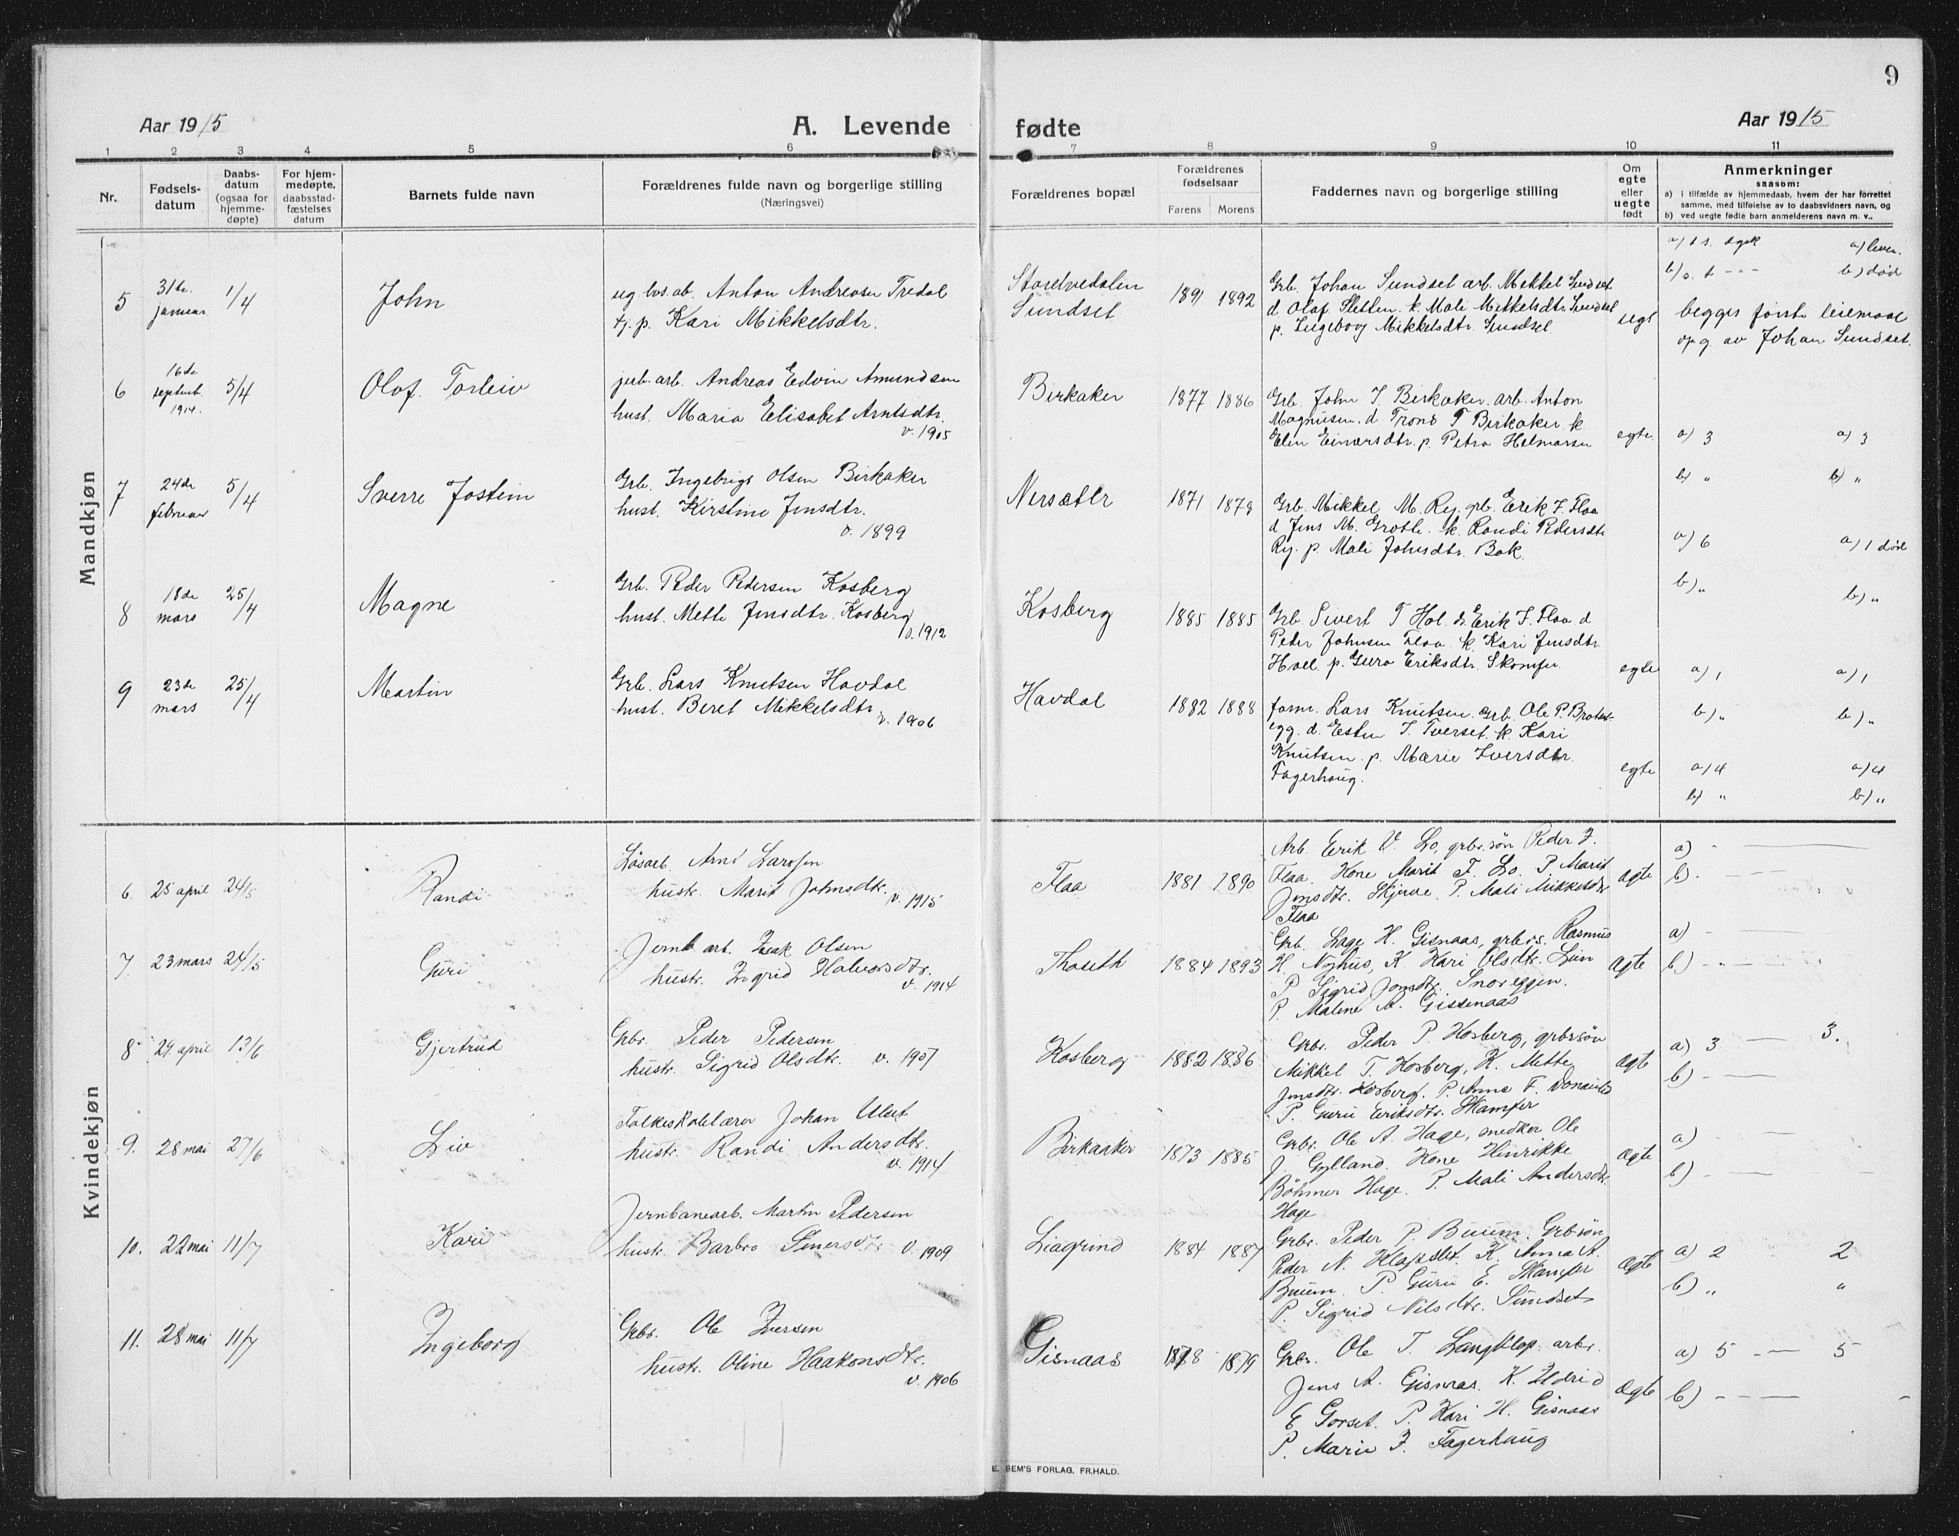 9
Aar 1915
A. Levende fødte
Aar 1915
1 2 3 4 5 6 7 8 9 10 11
Nr.
Fødsels-
datum
Daabs-
datum
(ogsaa for
hjemme-
døpte)
For hjem-
medøpte,
daabsstad-
fæstelses
datum
Barnets fulde navn
Forældrenes fulde navn og borgerlige stilling
(Næringsvei)
Forældrenes bopæl
Forældrenes
fødselsaar
Farens Morens
Faddernes navn og borgerlige stilling
Om
egte
eller
uegte
født
Anmerkninger
saasom:
a) i tilfælde av hjemmedaab, hvem der har forrettet
samme, med tilføielse av to daabsvidners navn, og
b) ved uegte fødte barn anmelderens navn m. v..
Mandkjøn
5
31te
januar
1/4
John
ug løs.ab. Anton Andreasen Tredal
tj. p. Kari Mikkelsdtr.
Storetvedalen
Sundset
1891 1892
Grb. Johan Sundset arb. Mikkel Sundset
d Olaf Sletten k. Mali Mikkelsdtr Sundsel
p. Ingeborg Mikkelsdtr. Sundsel
uegt
a) lever.
b) død
begges første leiemaal
opg av Johan Sundset.
6
16de
septemb.
1914.
5/4
Olaf Torleiv
jerb. arb. Andreas Edvin Amundsen
hust. Maria Elisabet Arntsdtr.
v. 1905
Birkaker
1877 1886
Grb John I. Birkaker. arb. Anton
Magnusen. d Trond T Birkaker k
Elen Einarsdtr. p. Petra Helmersen
egte.
a) 3 a) 3
b) " b) "
7
24de
februar
5/4
Sverre Jostein
Grb. Ingebrigt Olsen Birkaker
hust. Kirstine Jensdtr.
v. 1899
Nersætr
1871 1878
Grb. Mikkel M. Ry. grb. Erik I. Flaa
d Jens M. Grotte. k. Randi Pedersdtr
Ry. p. Mali Johnsdtr. Bak.
a) 6 a) 1 død
b) " b) "
8
18de
mars
25/4
Magne
Grb. Peder Pedersen Kosberg
hust. Mette Jensdtr. Kosberg
v. 1912
Kosberg
1885 1885
Grb Sivert T Hol. d. Erik I. Flaa d
Peter Johnsen Flaa k. Kari Jensdtr
Hoel. p. Guro Eriksdtr. Skamfer
egte
a) 1 a) 1
b) " b) "
9
23de
mars
25/4
Martin
Grb. Lars Knutsen Havdal
hust. Beret Mikkelsdtr.
v. 1906
Havdal
1882 1888
form. Lars Knutsen. Grb. Ole P. Bratset-
egg. d. Esten I. Tverset. k. Kari
Knutsen. p. Marie Iversdtr.
Fagerhaug.
egte
a) 4 a) 4
b) " b) "
Kvindekjøn
6.
25 april
24/5
Randi
Løsarb. Arnt Larssen
hustr. Marit Johnsdtr.
v. 1915
Flaa
1881 1890
Arb. Erik V. Lo, grbr.søn Peder I.
Flaa. Kone Marit F. Lo. P. Marit
Jonsdtr. Skjerve. P. Mali Mikkelsdtr
Flaa
ægte
a) -
b). -
7
23 mars
24/5
Guri
Jernb arb. Isak Olsen
hustr. Ingrid Halvorsdtr.
v. 1914
Thoseth
1884 1893
Grb. Lage H. Gisnaas, grbrs. Rasmus
H. Nyhus, K. Kari Olsdtr. Lien
P. Sigrid Jonsdtr. Snoreggen.
P. Maline A. Gissnaas
ægte
a) -
b) -
8
29 april
13/6
Gjertrud
Grbr. Peder Pedersen
hustr. Sigrid Olsdtr. v. 1907
Kosberg
1882 1886
Grbr. Peder P. Kosberg, grbrsøn
Mikkel T. Kosberg, K. Mette
Jonsdtr. Kosberg. P. Anne F.
P. Guru Eriksdtr. Skamfer
ægte
a) 3 - 3.
b) -
9.
28 mai
27/6
Liv
Folkeskolelærer Johan Ulset
hustr. Randi Andersdtr.
v. 1914
Birkaaker
1873 1885
Grbr. Ole A. Hage, snedker Ole
J. Gylland. Kone Hinrikke
Böhmer Hage. P. Mali Andersdtr.
Hage
ægte
a) -
b) -
10.
22 mai
11/7
Kari
Jernbanearb. Martin Pedersen
hustr. Barbro Simersdtr. v. 1909
Liagrind
1884 1887
Grbr. Peder P. Buum. Grbrsøn
Peder N. Klapslet. K. Anna A.
Buum. P. Guru E. Skamfer
P. Sigrid Nilsdtr. Sundset
ægte
a) 2 2
b) " "
11.
28 mai
11/7
Ingeborg
Grbr. Ole Iversen
hustr. Oline Haakonsdtr.
v. 1906
Gisnaas
1878 1879
Grbr. Ole T. Langklop. arbr.
Jens A. Gisnaas. K. Ildrid
E Gorset. P. Kari H. Gisnaas
P. Marie I. Fagerhaug
ægte
a) 5 - 5
b) -
E. SEM'S FORLAG, FR.HALD.